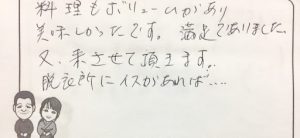 料理もボリュームがあり
美味しかったです。満足でありました。
又、来させて頂きます。
脱衣所にイスがあれば‥‥